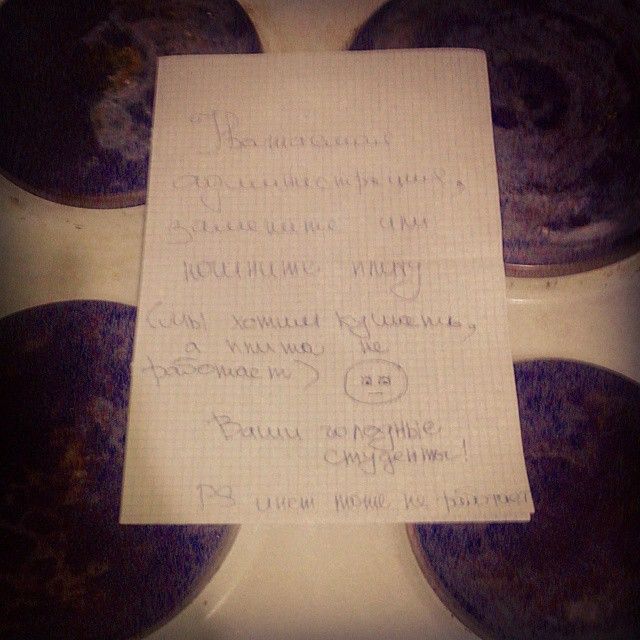 Уважаемая
администрация,
замените или
почините плиту
(мы хотим кушать,
а плита не
работает)
Ваши голодные
студенты!
PS инет тоже не работает